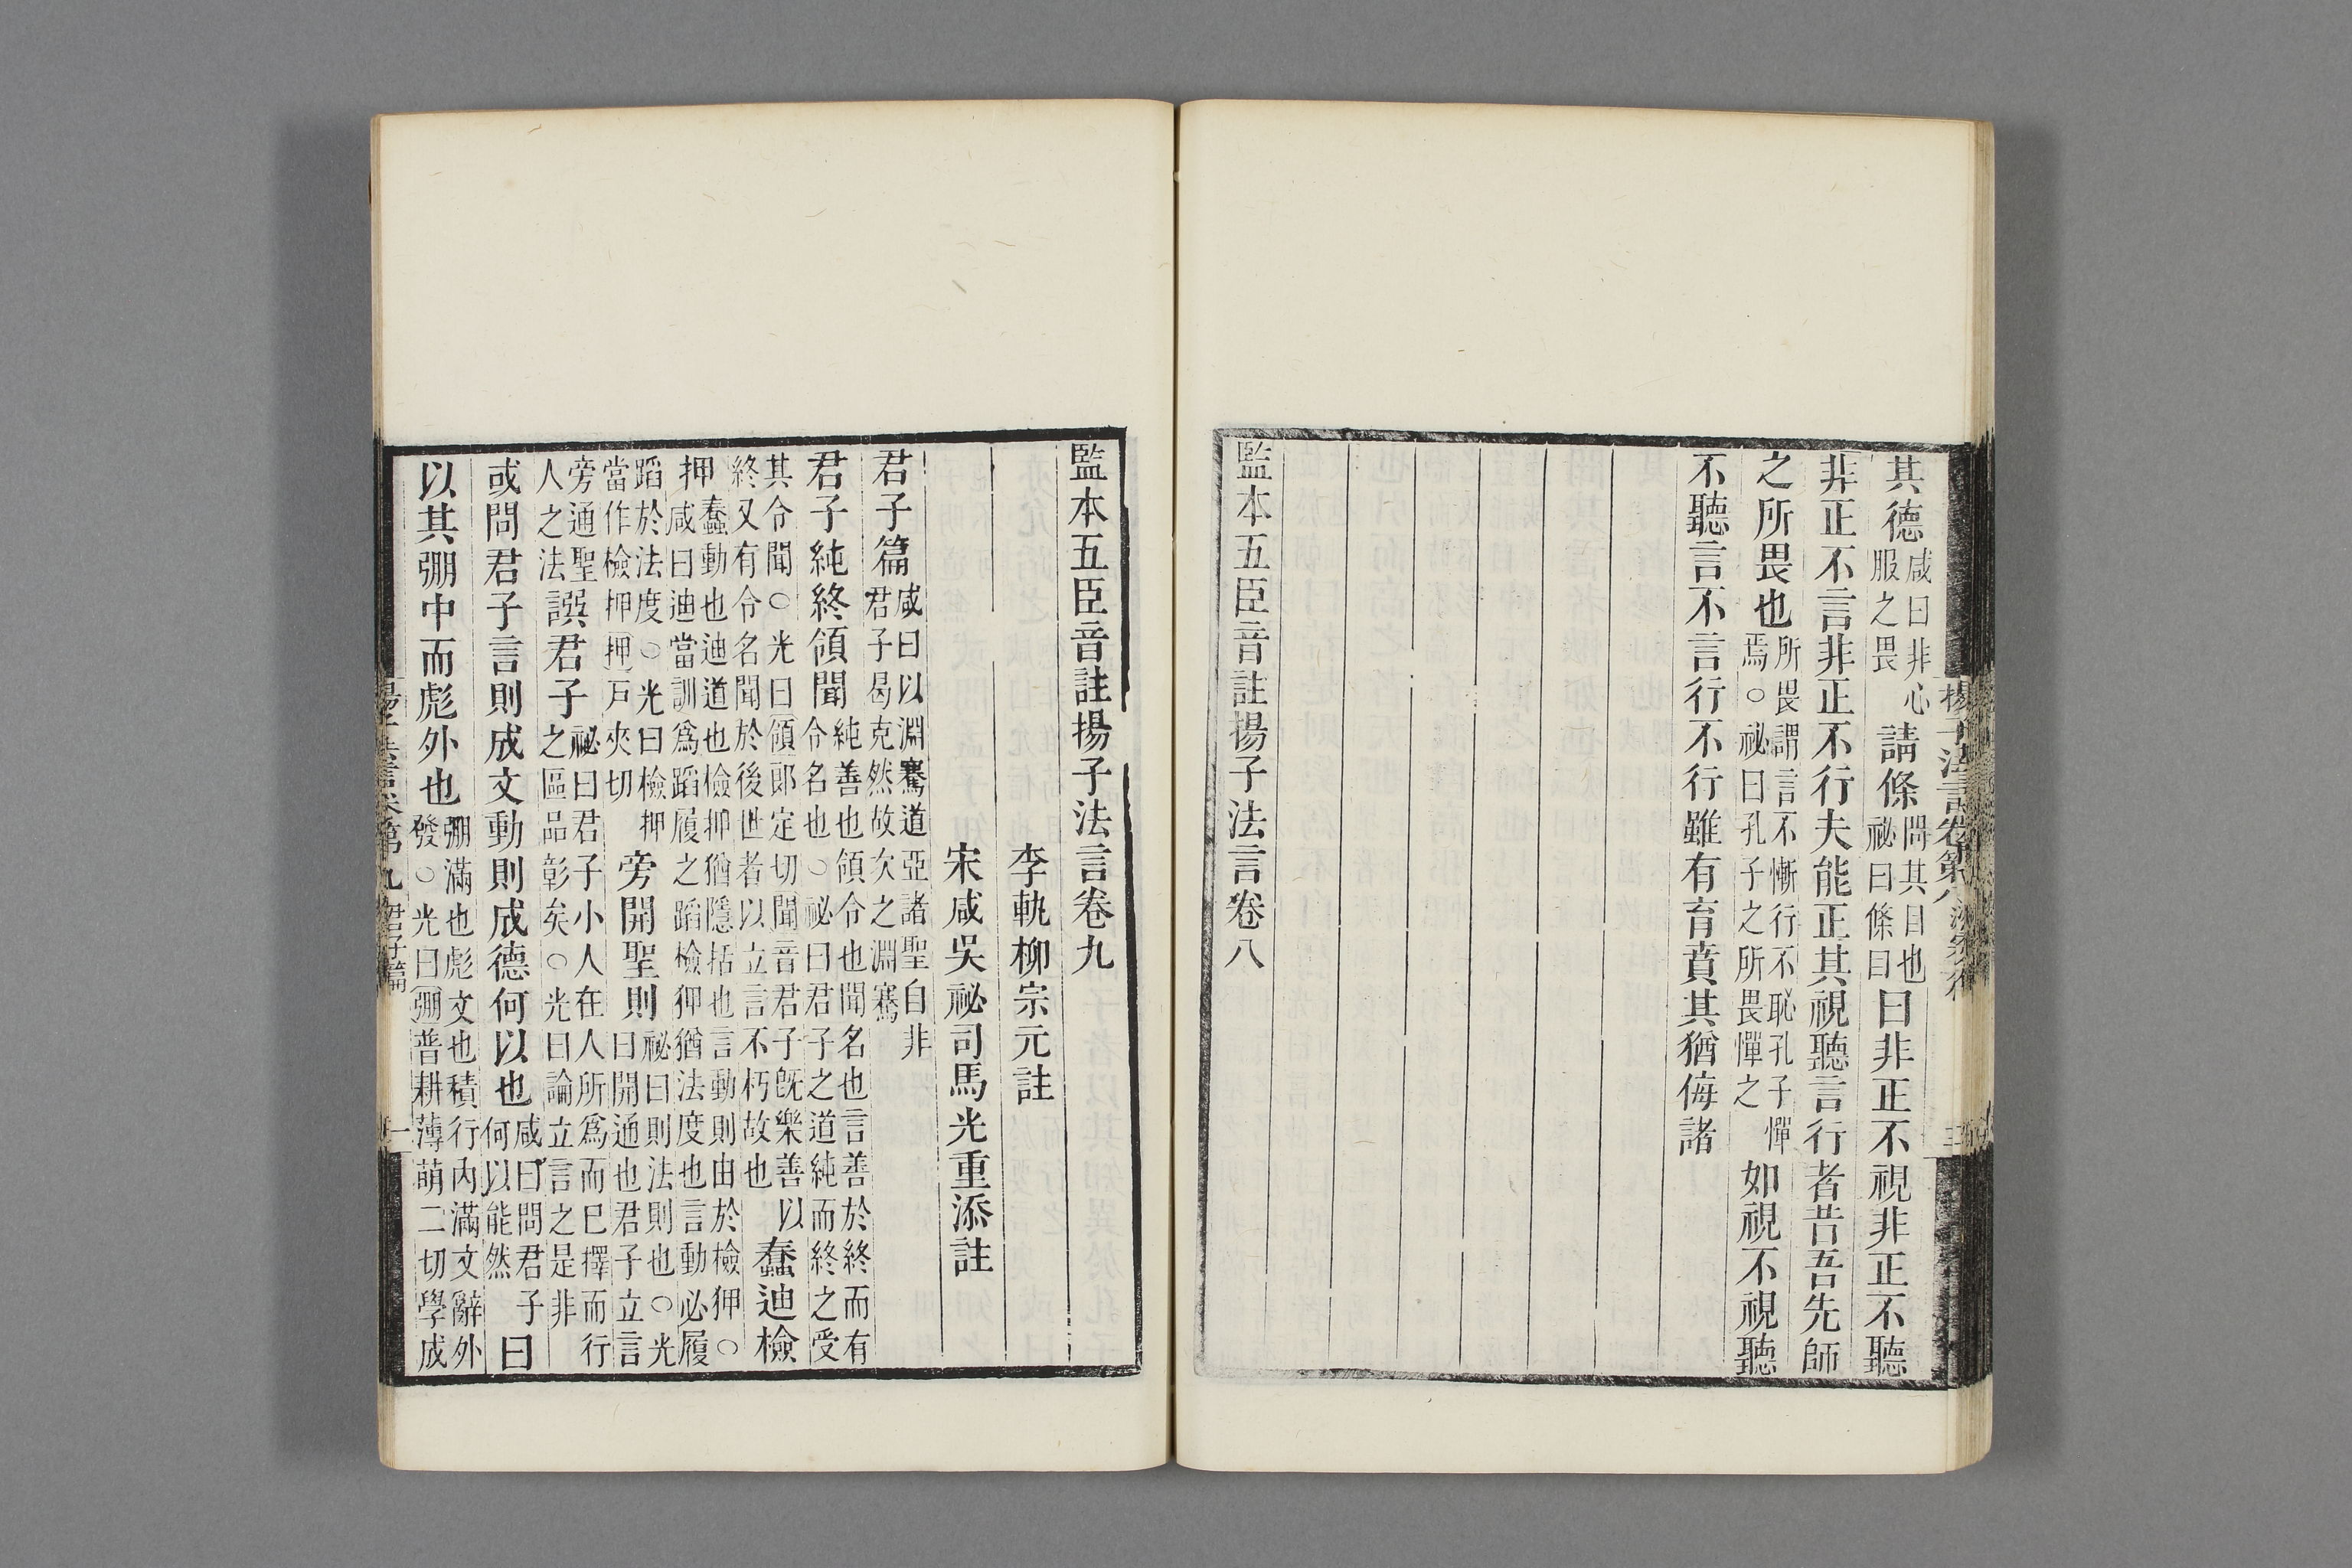 其德咸曰非心服之畏請條問其目也祕曰條曰曰非正不視非正不聽
非正不言非正不行夫能正其視聽言行者昔吾先師
之所畏也所畏謂言不慚行不恥孔子憚焉○祕曰孔子之所畏憚之如視不視聽
不聽言不言行不行雖有育賁其猶侮諸
監本五臣音註揚子法言卷八
監本五臣音註揚子法言卷九
李軌柳宗元註
宋咸吳祕司馬光重添註
君子篇咸曰以淵騫道亞諸聖自非君子曷克然故次之淵騫
君子純終領聞純善也領令也聞名也言善於終而有令名也○祕曰君子之道純而終之受
其令聞○光曰領郎定切聞音君子旣樂善終又有令名聞於後世者以立言不朽故也以蠢迪檢
押蠢動也迪道也檢押猶隱括也言動則由於檢押○咸曰迪當訓爲蹈履之蹈檢押猶法度也言動必履
蹈於法度○光曰檢押當作檢押押戸夾切旁開聖則祕曰則法則也○光曰開通也君子立言
旁通聖人之法譔君子祕曰君子小人在人所爲而巳擇而行之區品彰矣○光曰論立言之是非
或問君子言則成文動則成德何以也咸曰問君子何以能然曰
以其弸中而彪外也弸滿也彪文也積行內滿文辭外發○光曰弸普耕薄萌二切學成